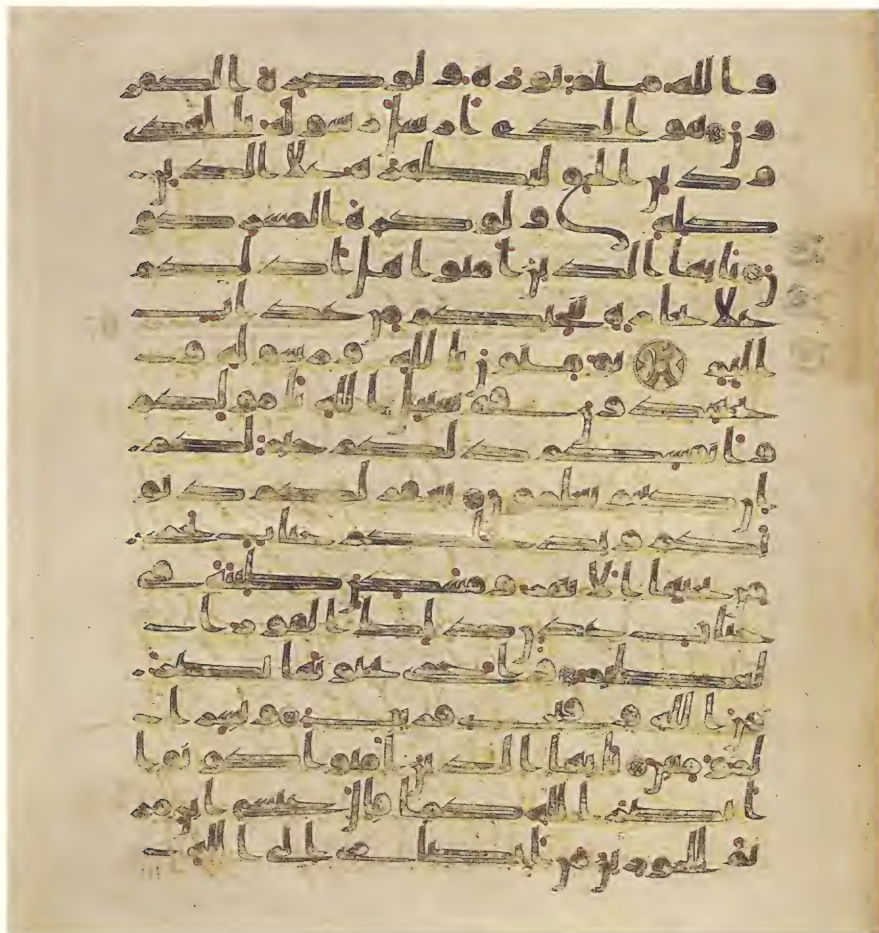 والله متم نوره ولو كره الكفر
ون هو الذى ارسل رسوله بالهدى
ودين الحق ليظهره على الدين
كله ولو كره المشركو
ن يايها الذين امنوا هل ادلكم
على تجرة تنجيكم من عذاب
اليم تومنون بالله ورسوله و
تجهدون فى سبيل الله باموالكم
وانفسكم ذلكم خير لكم
ان كنتم تعلمون يغفر لكم ذنو
بكم ويدخلكم جنت تجرى
من تحتها الانهر ومسكن طيبة فى
جنت عدن ذلك الفوز ا
لعظيم واخرى تحبونها نصر
من الله وفتح قريب وبشر ا
لمومنين يايها الذين امنوا كونوا
انصار الله كما قال عيسى ابن مر
يم للحوارين من انصارى الى الله